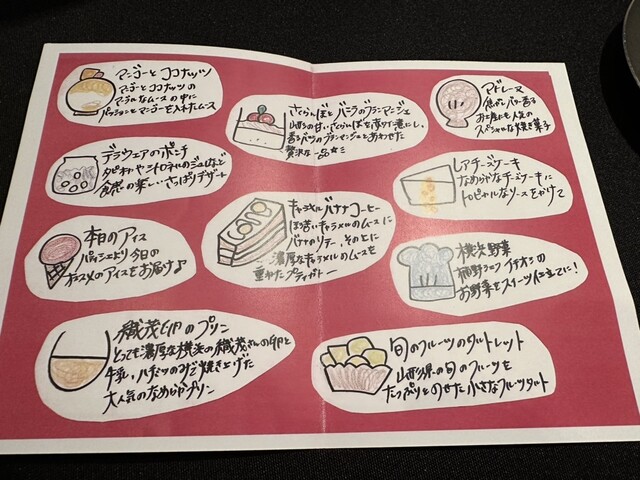 マンゴーと ココナッツ
マンゴーとココナッツの
マーブルなムースの中に
パッションとマンゴーを入れたムース
デラウェアのポンチ
タピオカやシトロネルのジュレなど
食感の楽しい さっぱりデザート
本日のアイス
パティシエより今日の
オススメのアイスをお届け♪
織茂卵のプリン
とっても濃厚な横浜の織茂さんの卵と
牛乳、ハチミツのみで焼き上げた
大人気のなめらかプリン
さくらんぼと バラのブランマンジェ
山形の甘いさくらんぼを赤ワイン煮にし、
香るバラのブランマンジェとあわせた
贅沢な一品☆ミ
キャラメル バナナ コーヒー
ほろ苦いキャラメルのムースに
バナナのソテー、その上に
濃厚なキャラメルのムースを
重ねたプティガトー
マドレーヌ
焦がしバター香る
お土産にも人気の
スペシャルな焼き菓子
レアチーズケーキ
なめらかなチーズケーキに
トロピカルなソースをかけて
横浜野菜
シェフ
お野菜をスイーツ仕立てに!
旬のフルーツのタルトレット
山形県の旬のフルーツを
たっぷりとのせた小さなフルーツタルト